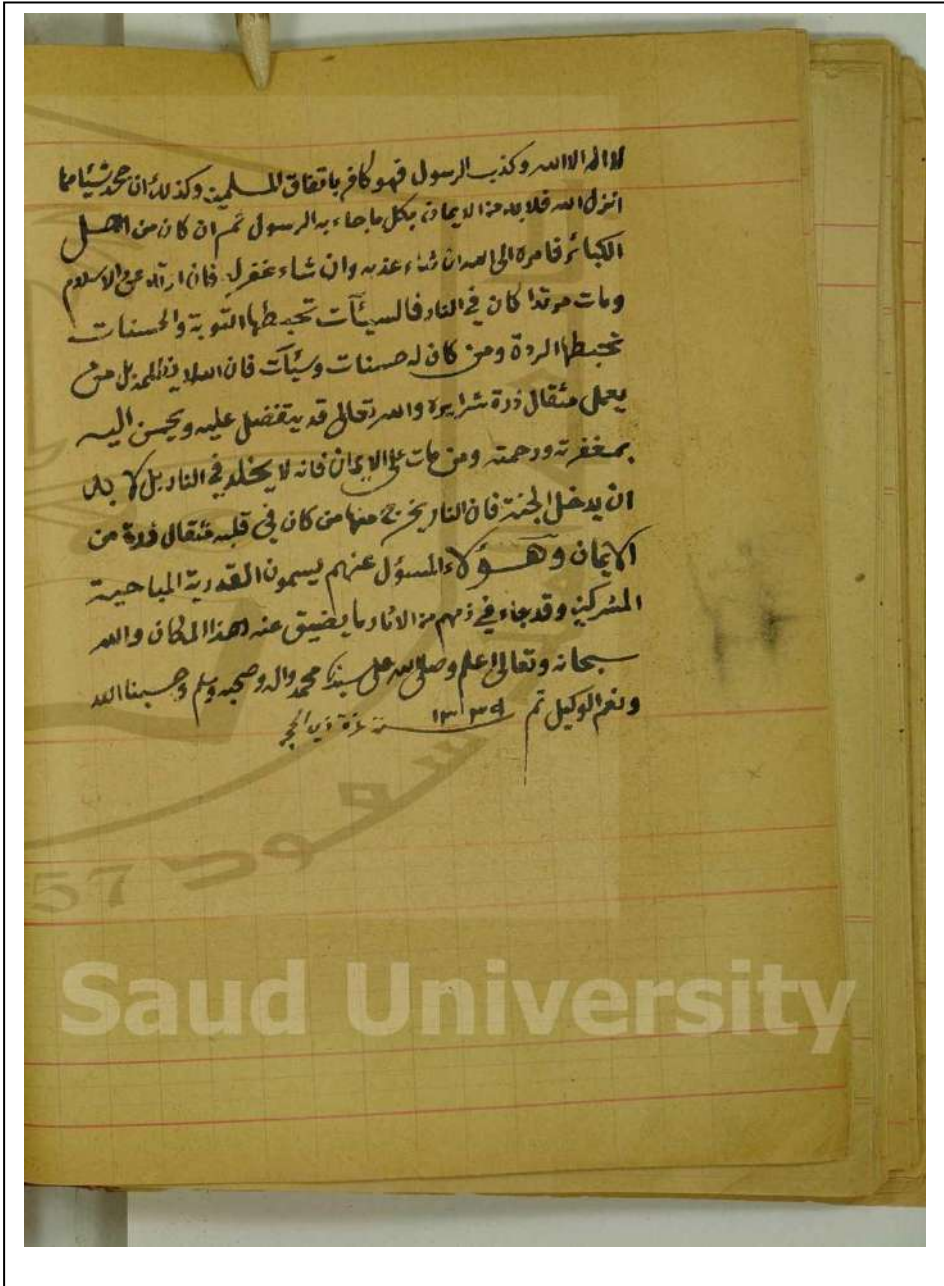 لا اله الا الله وكذب الرسول فهو كافر باتفاق المسلمين وكذلك ان جحد شيئا مما
انزل الله فلا بد من الايمان بكل ما جاء به الرسول ثم ان كان من اهل
الكبائر فامره الى الله ان شاء عذبه وان شاء غفر له فان ارتد عن الاسلام
ومات مرتدا كان في النار فالسيئآت تحبطها التوبة والحسنات
تحبطها الردة ومن كان له حسنات وسيئآت فان الله لا يظلمه بل من
يعمل مثقال ذرة شرا يره والله تعالى قد يتفضل عليه ويحسن اليه
بمغفرته ورحمته ومن مات على الايمان فانه لا يخلد في النار بل لا بد
ان يدخل الجنة فان النار يخرج منها من كان في قلبه مثقال ذرة من
الايمان وهؤلاء المسؤل عنهم يسمون القدرية المباحية
المشركين وقد جاء في ذمهم من الاثار ما يضيق عنه هذا المكان والله
سبحانه وتعالى اعلم وصلى الله على سيدنا محمد واله وصحبه وسلم وحسبنا الله
ونعم الوكيل تم ١٣٣٩
سعود
57
Saud University